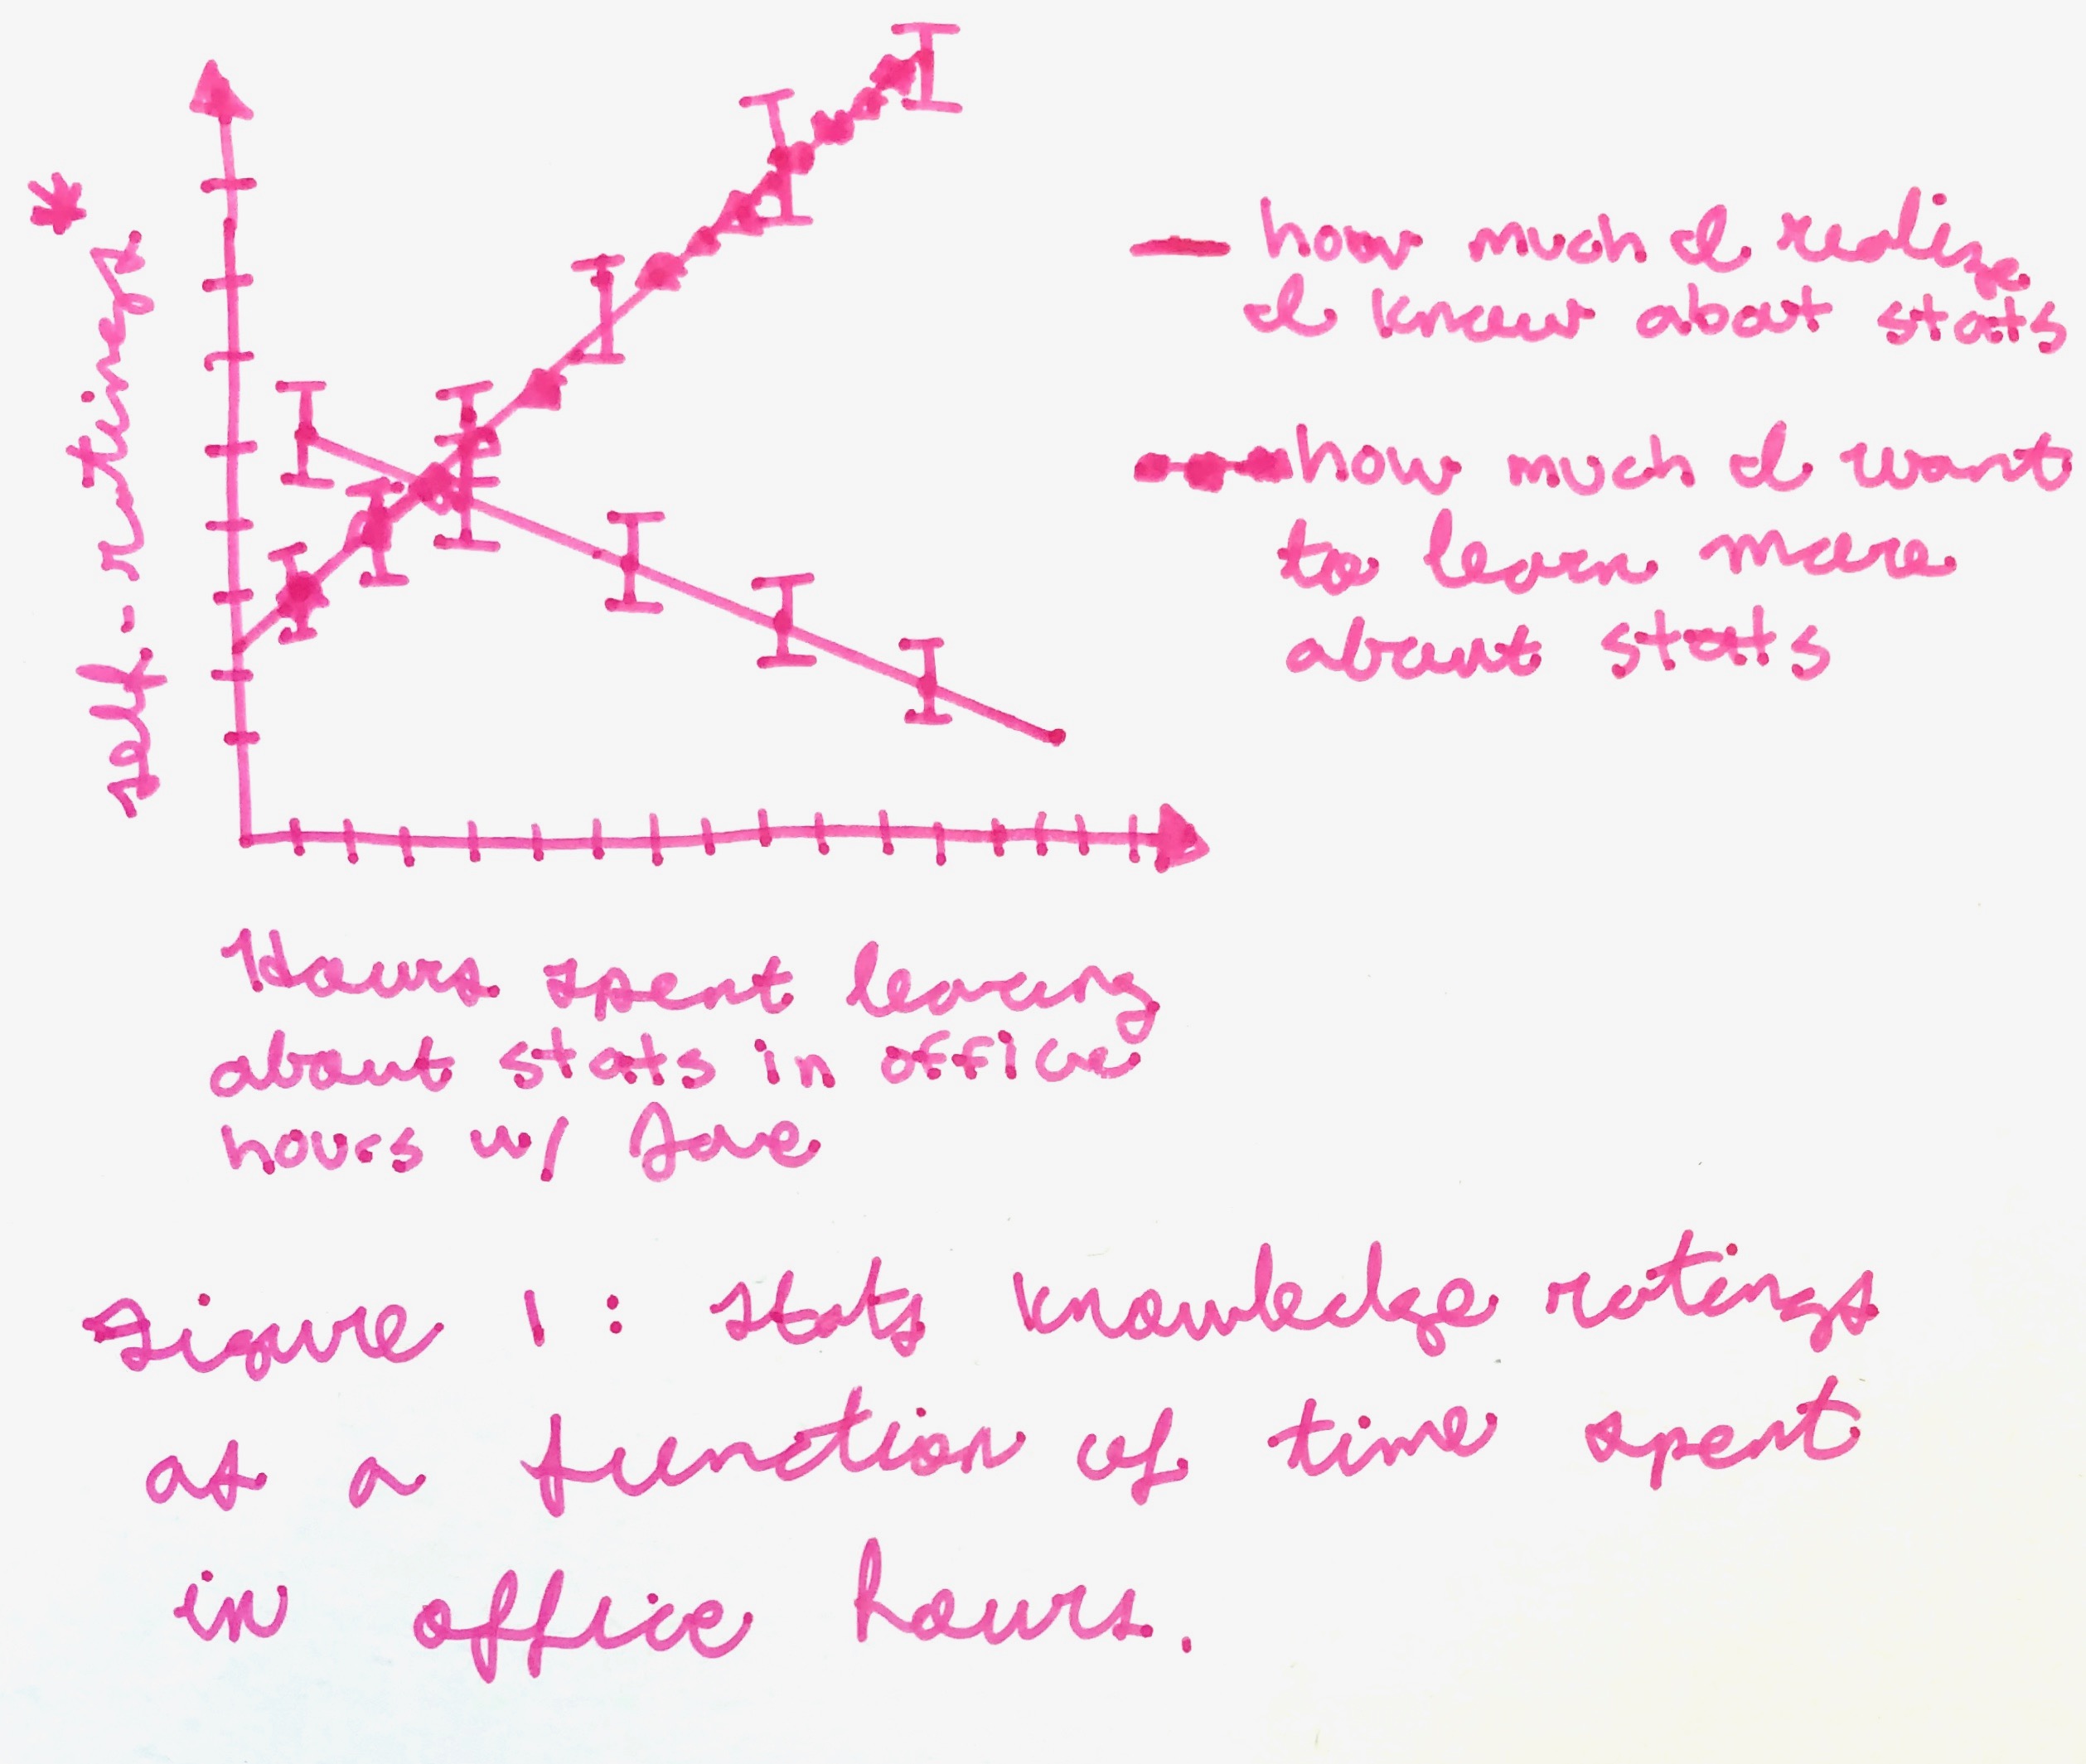 *
self-ratings
how much I realize
I know about stats
how much I want
to learn more
about stats
Hours spent learing
about stats in office
hours w/ Dave
Figure 1: Stats knowledge ratings
as a function of time spent
in office hours.